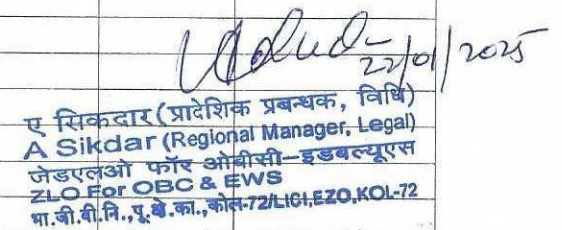 22/01/2025
ए सिकदार (प्रादेशिक प्रबन्धक, विधि)
A Sikdar (Regional Manager, Legal)
जेडएलओ फॉर ओबीसी-इडबल्यूएस
ZLO For OBC & EWS
भा.जी.बी.नि.,पू.क्षे.का.,कोल-72/LICI,EZO,KOL-72